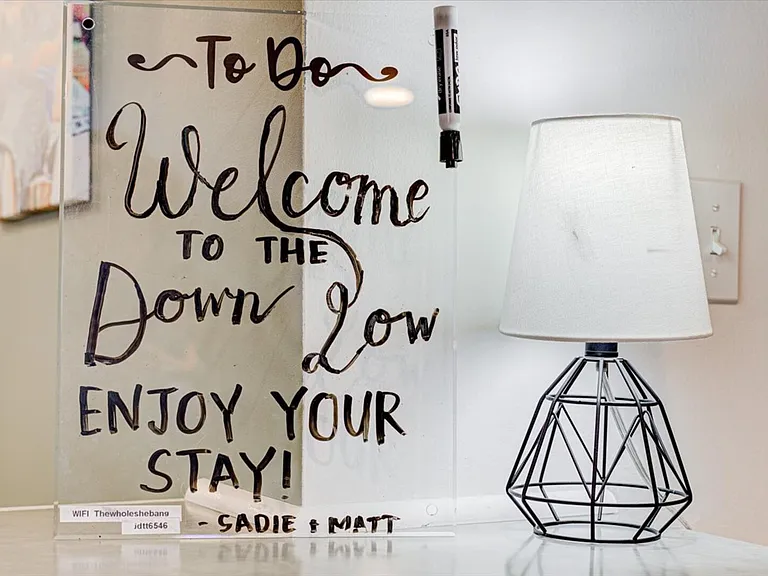 To Do
Welcome
TO THE
Down Low
ENJOY YOUR
STAY!
- SADIE & MATT
WIFI Thewholeshebang
jdtt6546